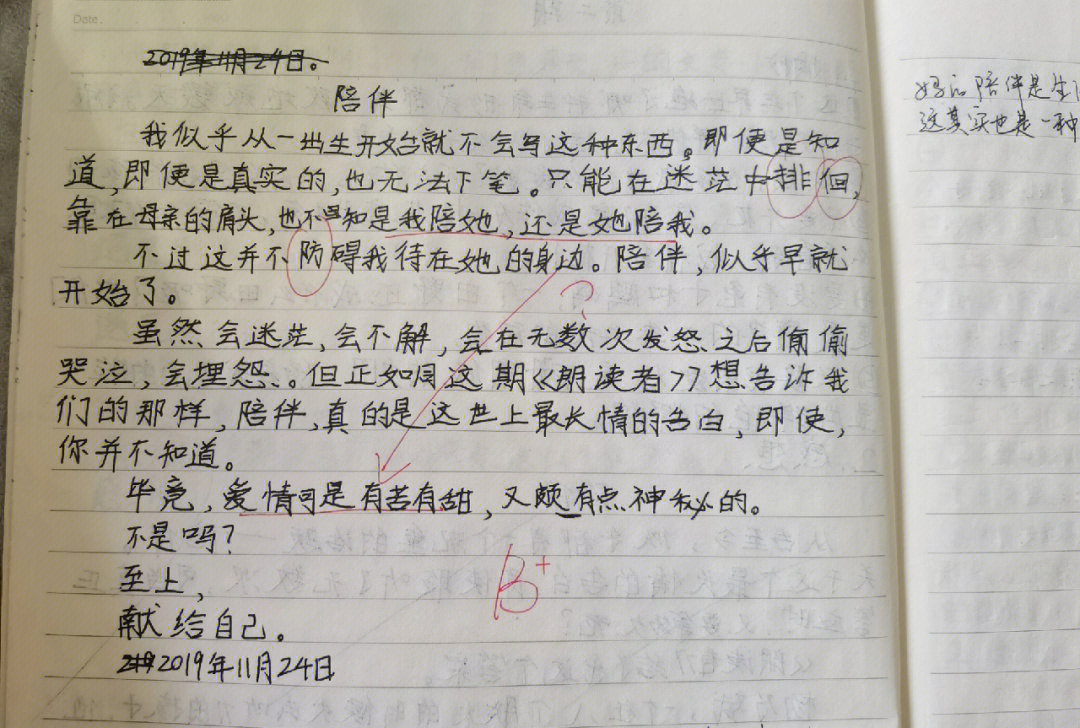 Date.
2019年11月24日。
陪伴
我似乎从一出生开始就不会写这种东西。即便是知
道,即便是真实的,也无法下笔。只能在迷茫中排徊,
靠在母亲的肩头,也不知是我陪她,还是她陪我。
不过这并不防碍我待在她的身边。陪伴,似乎早就
开始了。
?
虽然会迷茫,会不解,会在无数次发怒之后偷偷
哭泣,会埋怨、。但正如同这期《朗读者》想告诉我
们的那样,陪伴,真的是这世上最长情的告白,即使,
你并不知道。
毕竟,爱情可是有苦有甜,又颇有点神秘的。
不是吗?
至上,
献给自己。
2019年11月24日
B+
陪伴是生
这其实也是一种